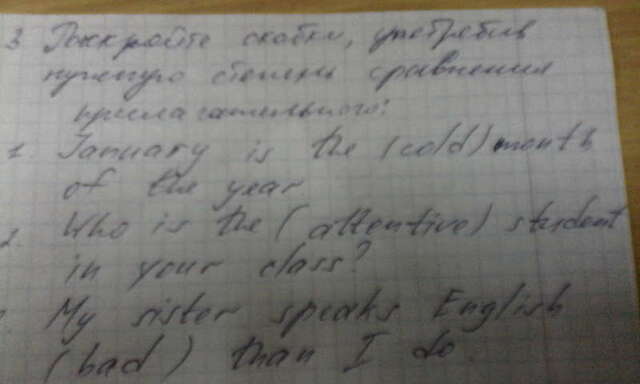 3 Раскройте скобки, употребив
нужную степень сравнения
прилагательного:
1. January is the (cold) month
of the year
2. Who is the (attentive) student
in your class?
My sister speaks English
(bad) than I do.